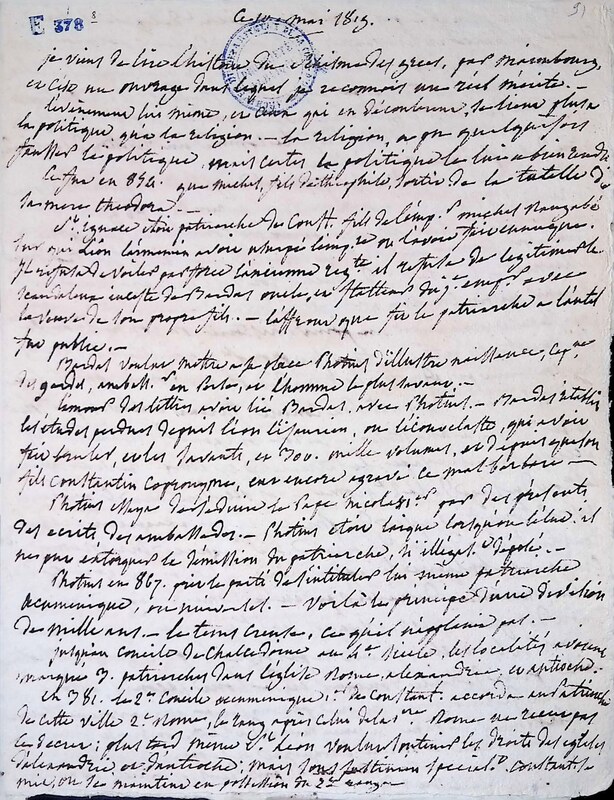 E 378 8
ce 1er mai 1819.
je viens de lire l'histoire du schisme des grecs, par Maimbourg,
et c'est un ouvrage dans lequel je reconnois un réel mérite. —
l'évènement lui même, et ceux qui en découlèrent, tiennent plus à
la politique, que la religion. — la religion, a pu quelquefois
fausser la politique, mais certes la politique le lui a bien rendu
Ce fut en 854. que michel, fils de théophile, sortit de la tutelle de
sa mere theodora. —
St. ignace étoit patriarche de Const. fils de l'emp. michel
sur qui Léon l'armenien avoit usurpé l'empire on l'avoit fait eunuque.
Il refusa de voiler par force l'ancienne il refusa de légitimer le
scandaleux inceste de Bardas oncle, et avec
la veuve de son propre fils. — l'affront que fit le patriarche à l'autel
fut public. —
Bardas voulut mettre à sa place Photius d'illustre naissance,
des gardes, en Perse, et l'homme le plus savant. —
l'amour des lettres avoit lié Bardas, avec Photius. — Bardas rétablit
les études perdues depuis Léon l'isaurien, ou l'iconoclaste, qui avoit
fait bruler, et les savants, et 300. mille volumes, et depuis que son
fils constantin copronyme, eut encore agravé ce mal barbare —
Photius essaya de séduire le Pape Nicolas 1er par des présents
des ecrits, des ambassades. — Photius étoit laique lorsqu'on l'élut. il
ne put extorquer la démission du patriarche, si illégalt déposé. —
Photius en 867. prit le parti de s'intituler lui même patriarche
œcumenique, ou — Voilà le principe d'une division
de mille ans. — le tems creuse, ce qu'il n'applanit pas. —
jusqu'au concile de Chalcedoine au 4e siecle, les localités avoient
marqué 3. patriarches dans l'église Rome, alexandrie, et antioche.
en 381. le 2e concile œcumenique 1er de Constant. accorda au Patriarche
de cette ville 2e Rome, le rang après celui de la 1ere Rome ne reçut pas
ce decret; plus tard même St. Léon voulut soutenir les droits des eglises
d'alexandrie et d'antioche; mais Constanti-
se maintint en possession du 2e rang